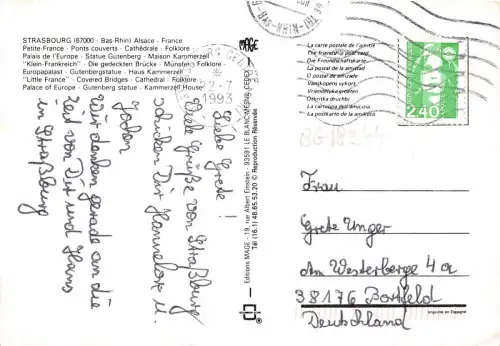 STRASBOURG (67000 - Bas-Rhin) Alsace - France
Petite-France - Ponts couverts - Cathédrale - Folklore
Palais de l'Europe - Statue Gutenberg - Maison Kammerzell
"Klein-Frankreich" - Die gedeckten Brücke - Münster - Folklore
Europapalast - Gutenbergstatue - Haus Kammerzell
"Little France" - Covered Bridges - Cathedral - Folklore
Palace of Europe - Gutenberg statue - Kammerzell House
22-7
1993
BAS-RHIN
MAGE
La carte postale de l'amitié
The friendship post card
Die Freundschaftskarte
La postal de la amistad
O postal de amizade
Vanskapens vykort
Vriendschapskaarten
La cartolina dell'amicizia
La postkarto de la amikeco
2,40
Liebe Grete!
Viele Grüße von Straßburg
schicken Dir Hannelore u.
Jochen
Wir denken gerade an die
Zeit von Dir und Hans
in Straßburg
Editions MAGE - 19, rue Albert Einstein - 93591 LE BLANC MESNIL CEDEX
Tél (16.1) 48.65.53.20 © Reproduction Réservée
Frau
Grete Unger
Am Westerberge 4a
38176 Bortfeld
Deutschland
Imprimé en Espagne